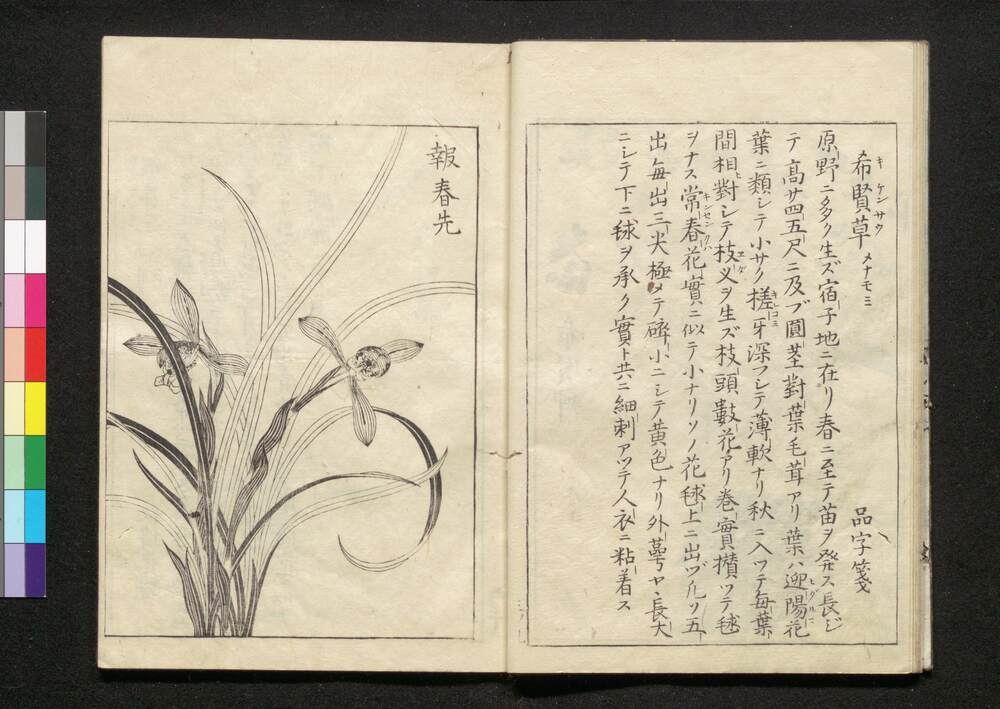 希賢草 メナモミ 品字箋
キ ケンサウ
原野ニ多ク生ズ宿子地ニ在リ春ニ至テ苗ヲ発ス長ジ
テ高サ四五尺ニ及ブ圓茎對葉毛茸アリ葉ハ迎陽花
ヒグルマ
葉ニ類シテ小サク槎牙深フシテ薄軟ナリ秋ニ入ツテ毎葉
キレコミ
間相對シテ枝义ヲ生ズ枝頭數花アリ巻實攅ツテ毬
エダ
ヲナス常春花實ニ似テ小ナリソノ花毬上ニ出ヅ凡ソ五
キンセンクハ
出毎出三尖極メテ碎小ニシテ黄色ナリ外萼ヤヽ長大
ニシテ下ニ毬ヲ承ク實ト共ニ細刺アツテ人衣ニ粘着ス
報春先